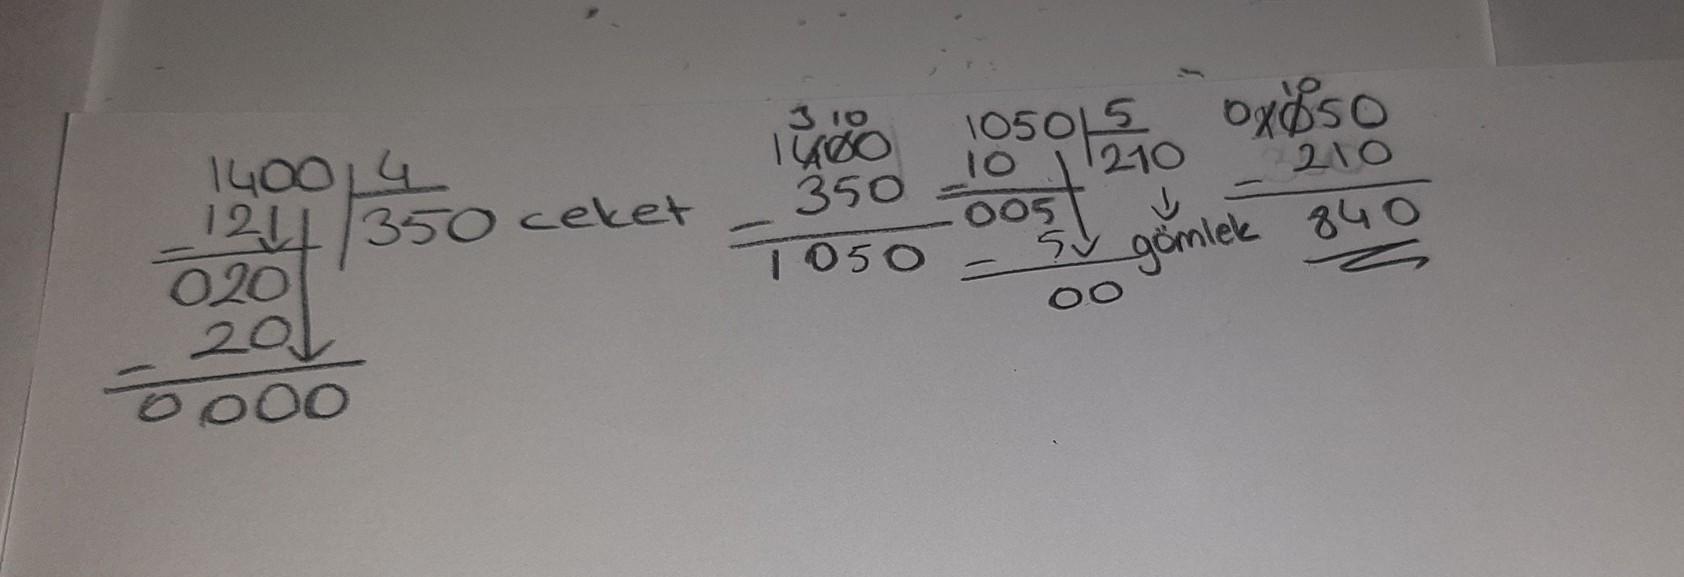 1400 4
12
350 ceket
020
- 20
0000
3 10
1400
- 350
1050
1050 5
- 10 210
005
- 5 gömlek
00
10
01050
- 210
840